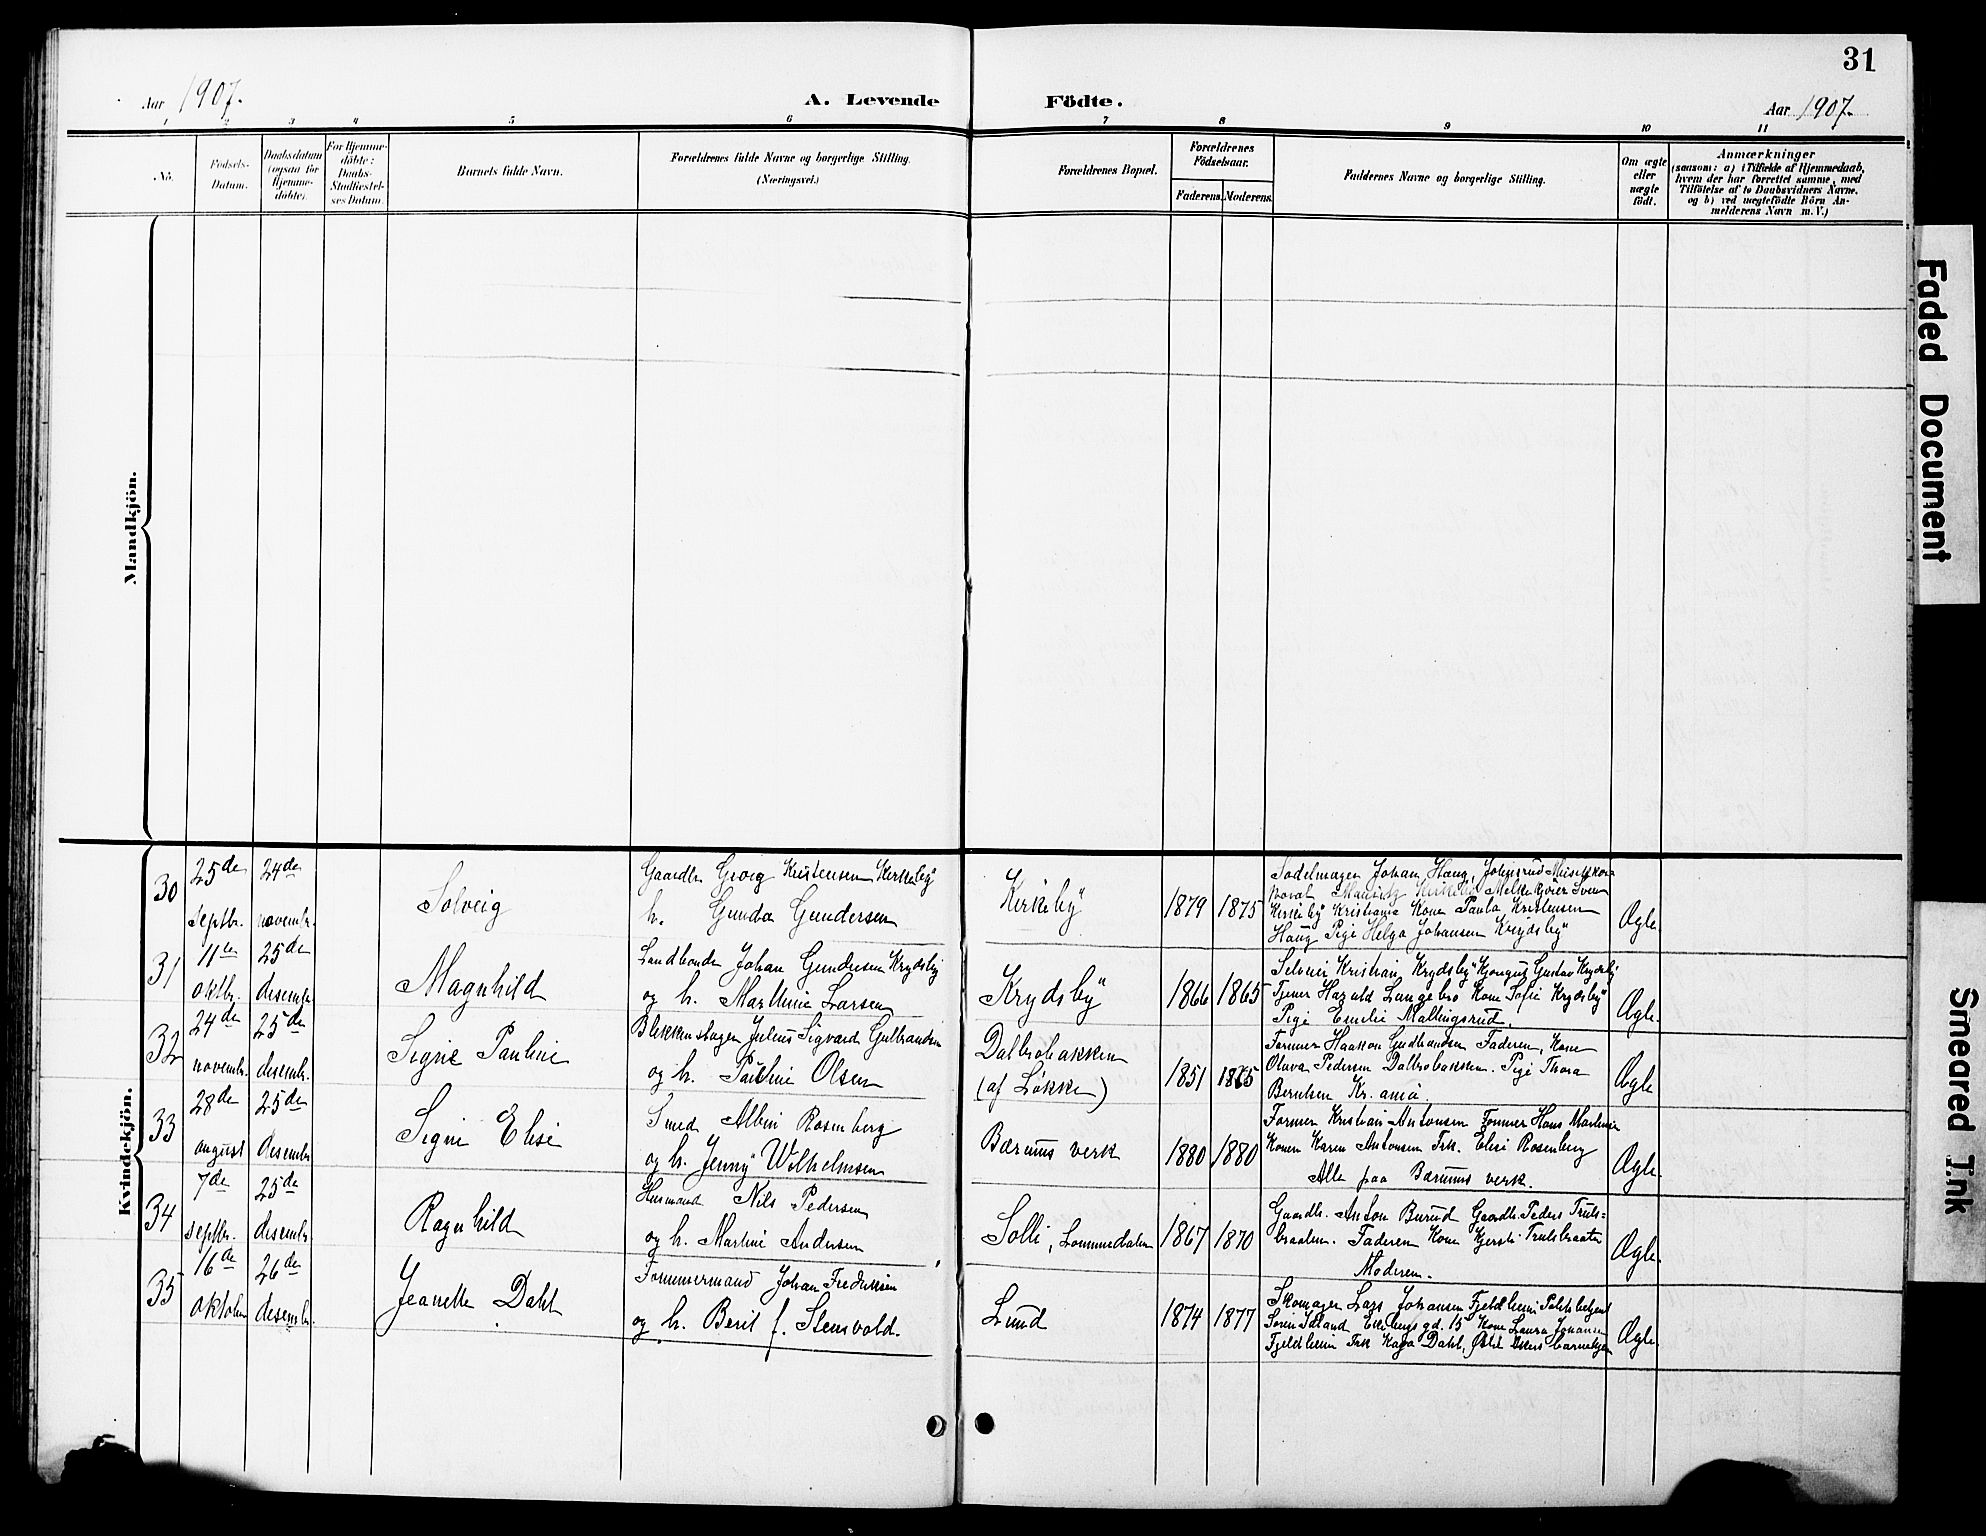 31
Aar 1907. A. Levende Födte. Aar 1907.
1 2 3 4 5 6 7 8 9 10 11
No. Fødsels-Datum. Daabsdatum (ogsaa for Hjemme-døbte). For Hjemme-døbte: Daabs-Stadfæstel-ses Datum. Barnets fulde Navn. Forældrenes fulde Navne og borgerlige Stilling. (Næringsvei.) Forældrenes Bopæl. Forældrenes Fødselsaar. Faderens. Moderens. Faddernes Navne og borgerlige Stilling. Om ægte eller uægte født. Anmærkninger (saasom: a) i Tilfælde af Hjemmedaab, hvem der har forrettet samme, med Tilføielse af to Daabsvidners Navne, og b) ved uægtefødte Börn Anmelderens Navn m. V.)
Mandkjön.
Kvindekjön.
30 25de septbr. 24de novembr. Solveig
Gaardbr. Georg Kristensen Kirkeby
h. Gunda Gundersen
Kirkeby 1879 1875
Sadelmager Johan Haug,
Kirkeby Kristiania Kone Paula Kristensen
Haug Pige Helga Johansen Krydsby
Ægte.
31 11te oktbr. 25de desembr. Magnhild
Landbonde Johan Gundersen Krydsby
og h. Marthine Larsen
Krydsby 1866 1865
Selveier Kristian Krydsby Gustav Krydsby
Tjener Harald Langebro Kone Sofie Krydsby
Pige Emilie Mallingsrud.
Ægte.
32 24de novembr. 25de desembr. Signe Pauline
Blikkenslager Julius Sigvard Gulbrandsen
og h. Pauline Olsen
Dalbobakken
(af Løkke) 1851 1865
Former Haakon Faderen, Kone
Olava Pedersen Dalbobakken. Pige Thora
Berntsen Kr.ania
Ægte
33 28de august 25de desembr Signe Elise
Smed Albin Rosenberg
og h. Jenny Wilhelmsen
Bærums verk 1880 1880
Former Kristian Antonsen Former Hans
Konen Karen Antonsen Frk. Elise Rosenberg
Alle paa Bærums verk.
Ægte.
34 7de septbr. 25de desembr. Ragnhild
Husmand Nils Pedersen
og h. Martine Andersen
Solli, Lommedalen 1867 1870
Gaardb. Anton Burud Gaardb. Peder Truls=
braaten. Faderen Kone Kjersti Trulsbraaten
Moderen.
Ægte.
35 16de oktober 26de desembr. Jeanette Dahl
Tømmermand Johan Fredriksen
og h. Berit f. Stensvold.
Lund 1874 1877
Skomager Lars Johansen Fjeldheim Politibetjent
gd. 15 Kone Laura Johansen
Fjeldheim Frk Kaya Dahl,
Ægte.
Faded Document
Smeared Ink